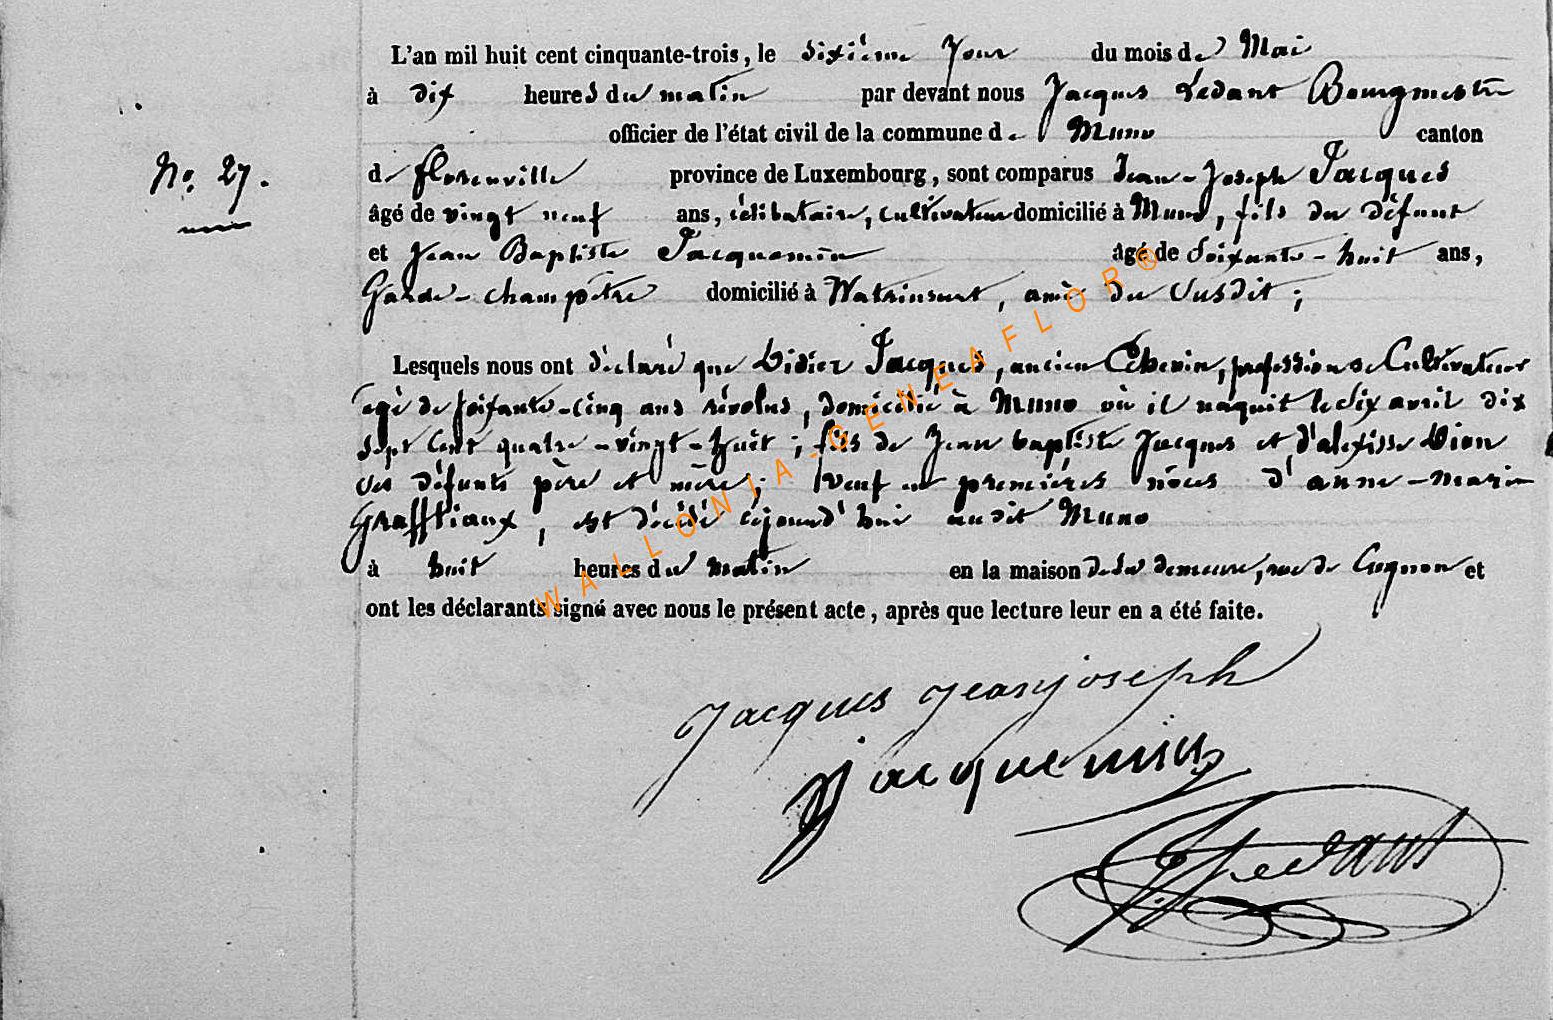 L'an mil huit cent cinquante-trois, le sixième jour du mois de Mai
à dix heures du matin par devant nous Jacques Ledant Bourgmestre
officier de l'état civil de la commune de Muno canton
de florenville province de Luxembourg, sont comparus Jean-Joseph Jacques
No. 27.
âgé de vingt neuf ans, célibataire, cultivateur domicilié à Muno, fils du défunt
et Jean Baptiste Jacquemin âgé de Soixante-huit ans,
Garde-champêtre domicilié à Watrinsart, ami du susdit;
Lesquels nous ont déclaré que Didier Jacques, ancien Echevin, profession de Cultivateur
agé de soixante-cinq ans révolus, domicilié à Muno où il naquit le six avril dix
sept cent quatre-vingt-huit; fils de Jean baptiste Jacques et d'alexisse Dion
ses défunts père et mère; veuf en premières nôces d'anne-marie
Grafftiaux, est décédé cejourd'hui audit Muno
à huit heures du matin en la maison de sa demeure, rue de Cugnon et
ont les déclarants signé avec nous le présent acte, après que lecture leur en a été faite.
Jacques Jeanjoseph
Jacquemin
Ledant
WALLONIA-GENEAFLOR®